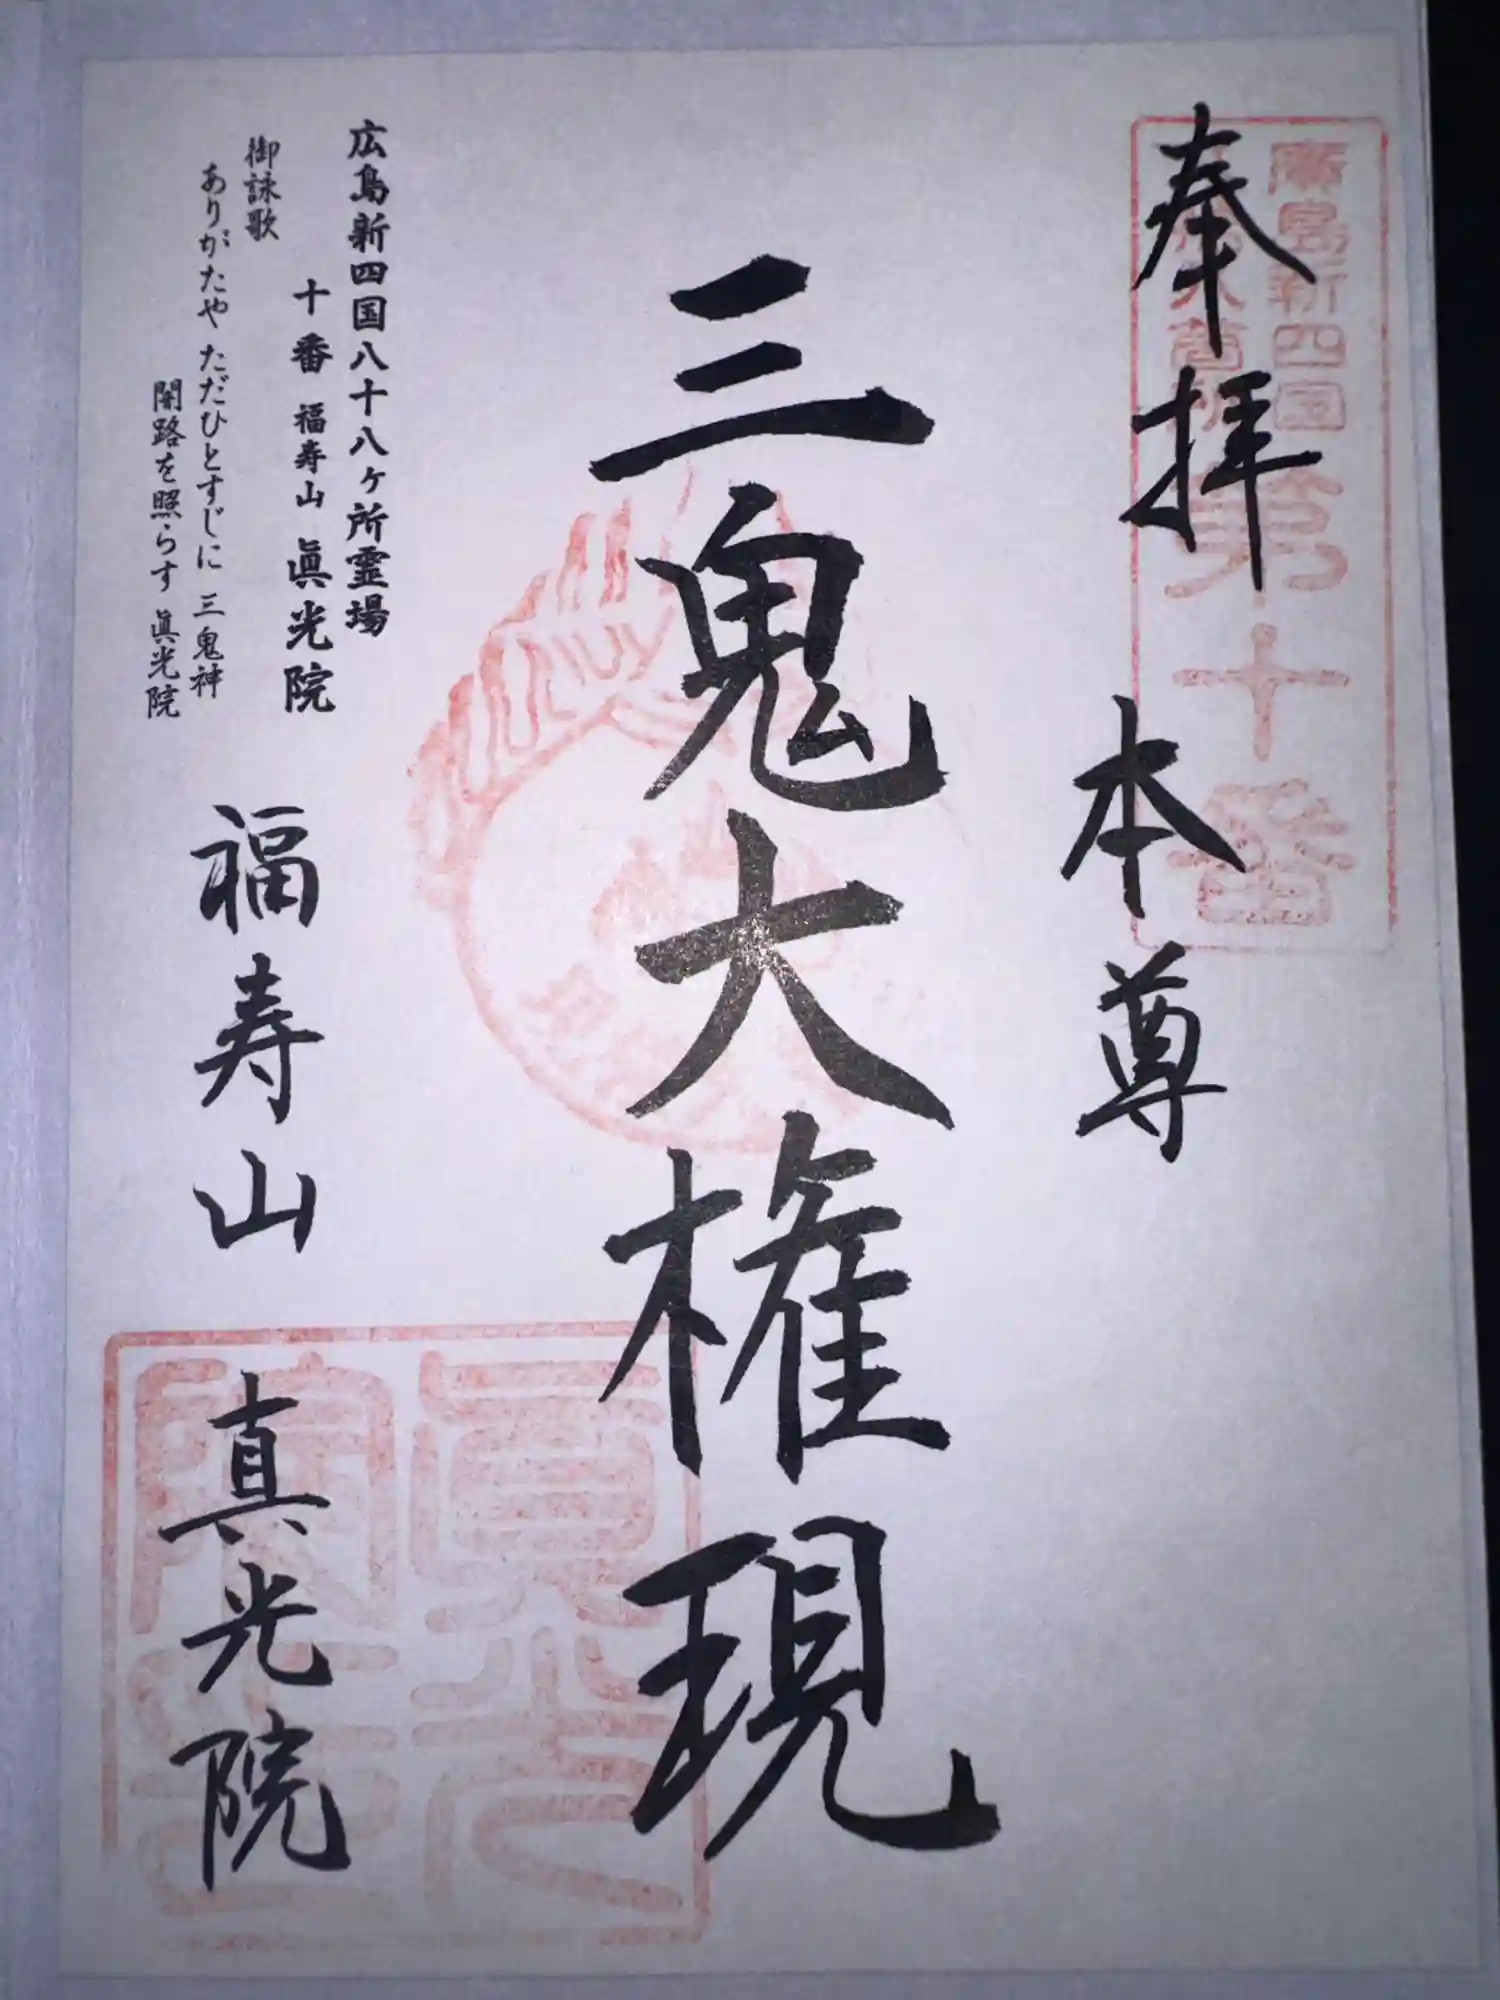 奉拝
本尊
三鬼大権現
広島新四国八十八ヶ所霊場
十番 福寿山 眞光院
御詠歌
ありがたや ただひとすじに 三鬼神
開路を照らす 眞光院
福寿山
真光院
廣島新四国
第十番